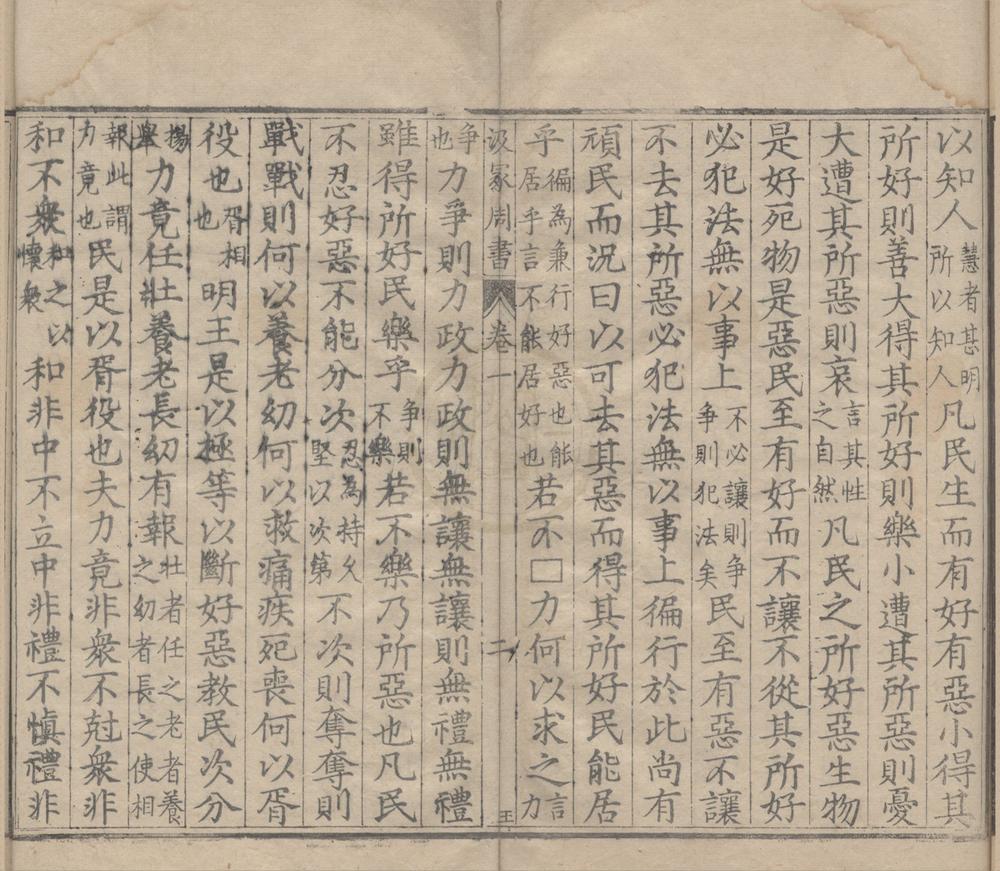 以知人慧者甚明所以知人凡民生而有好有惡小得其
所好則善大得其所好則樂小遭其所惡則憂
大遭其所惡則哀言其性之自然凡民之所好惡生物
是好死物是惡民至有好而不讓不從其所好
必犯法無以事上不必讓則争争則犯法矣民至有惡不讓
不去其所惡必犯法無以事上徧行於此尚有
頑民而況曰以可去其惡而得其所好民能居
乎徧為兼行好惡也能居乎言不能居好也若不□力何以求之言力
汲冢周書 卷一 二 王
争也力爭則力政力政則無讓無讓則無禮無禮
雖得所好民樂乎争則不樂若不樂乃所惡也凡民
不忍好惡不能分次忍為持久堅以次第不次則奪奪則
戰戰則何以養老幼何以救痛疾死喪何以胥
役也胥相也明王是以極等以斷好惡教民次分
揚舉力竟任壯養老長幼有報壯者任之老者養之幼者長之使相
報此謂力竟也民是以胥役也夫力竟非衆不尅衆非
和不衆和之以懷衆和非中不立中非禮不慎禮非